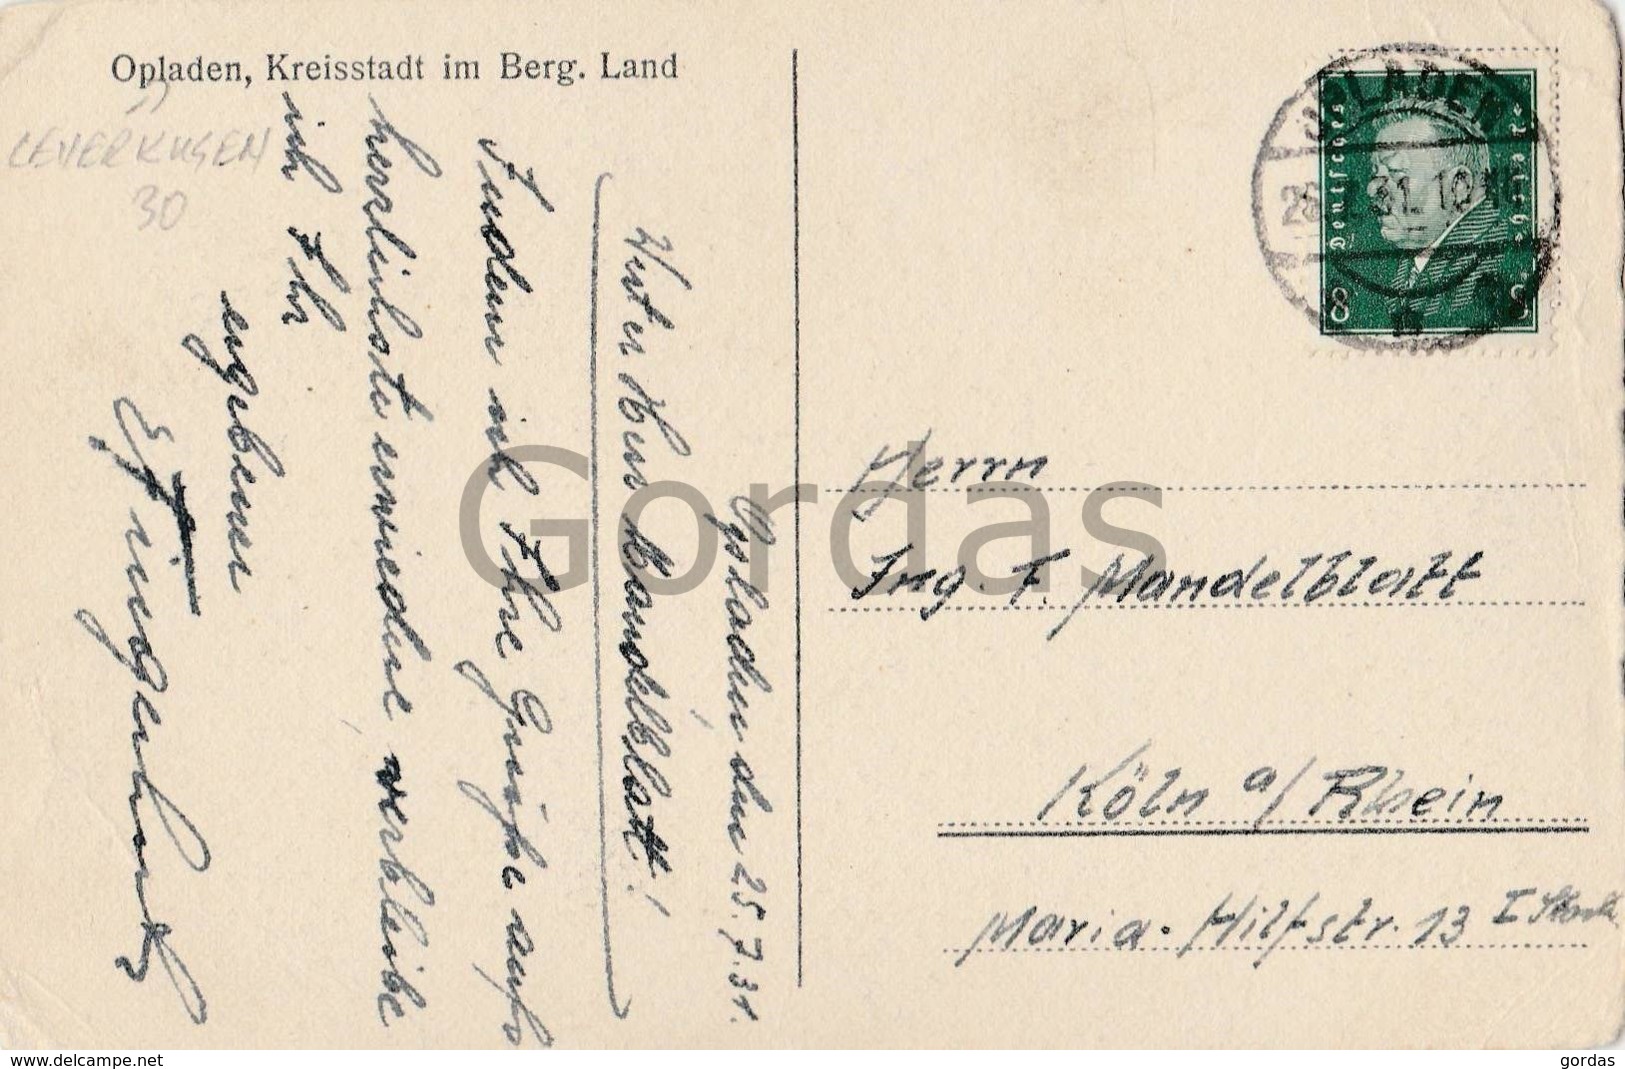 Opladen, Kreisstadt im Berg. Land
LEVERKUSEN
30
Opladen, den 25.7.31.
Werter Herr Mandelblatt!
Indem ich Ihre Grüße aufs
herzlichste erwiedere, verbleibe
ich Ihr
ergebener
OPLADEN
31.10
Deutsches Reich
8 8
Herrn
Ing. F. Mandelblatt
Köln a/Rhein
Maria-Hilfstr. 13 I
Gordas
www.delcampe.net
gordas